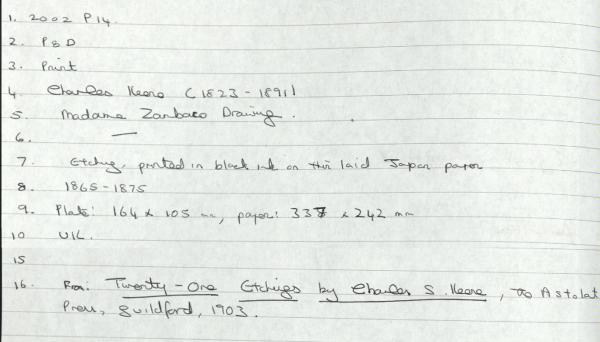 1. 2002 P14.
2. P&D
3. Print
4. Charles Keene (1823-1891)
5. Madame Zambaco Drawing.
6. —
7. Etching, printed in black ink on thin laid Japan paper
8. 1865-1875
9. Plate: 164 x 105 mm, paper: 337 x 242 mm
10 UK.
15
16. From: Twenty-One Etchings by Charles S. Keene, Astolat
Press, Guildford, 1903.